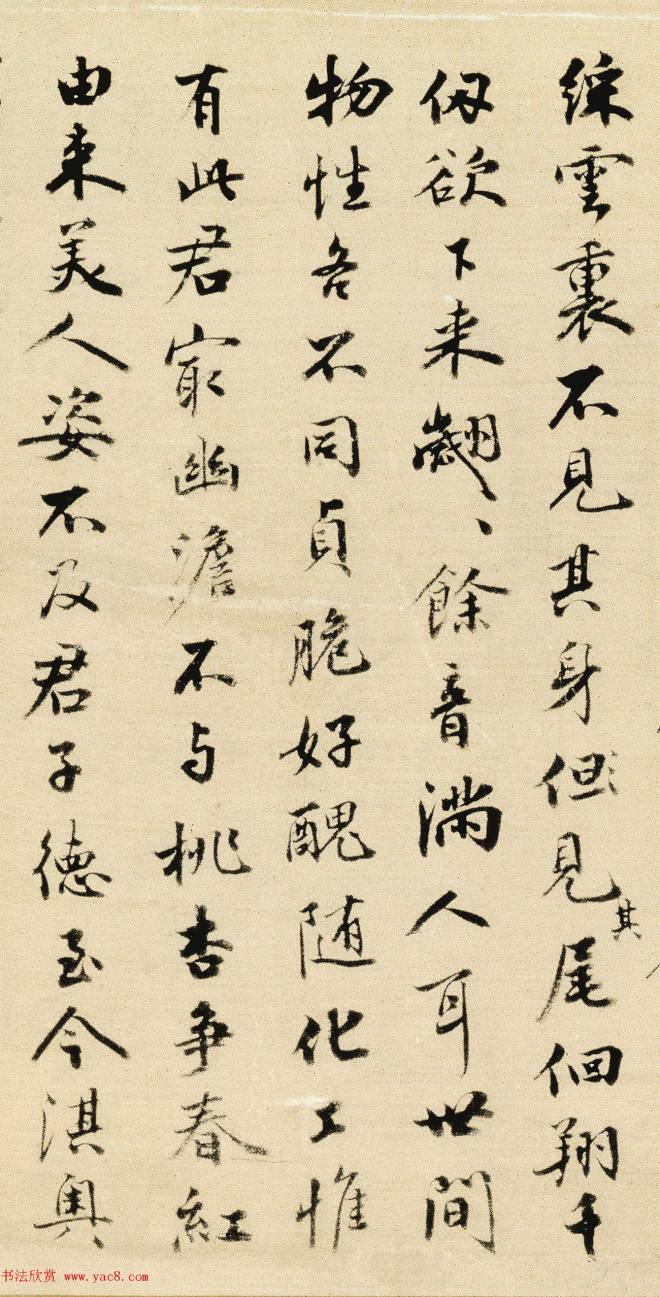 綵雲裏不見其身但見其尾佪翔千
仞欲下来翽、餘音滿人耳世間
物性各不同貞脆好醜随化工惟
有此君寂幽澹不与桃杏争春紅
由来美人姿不及君子德至今淇奥
书法欣赏 www.yac8.com